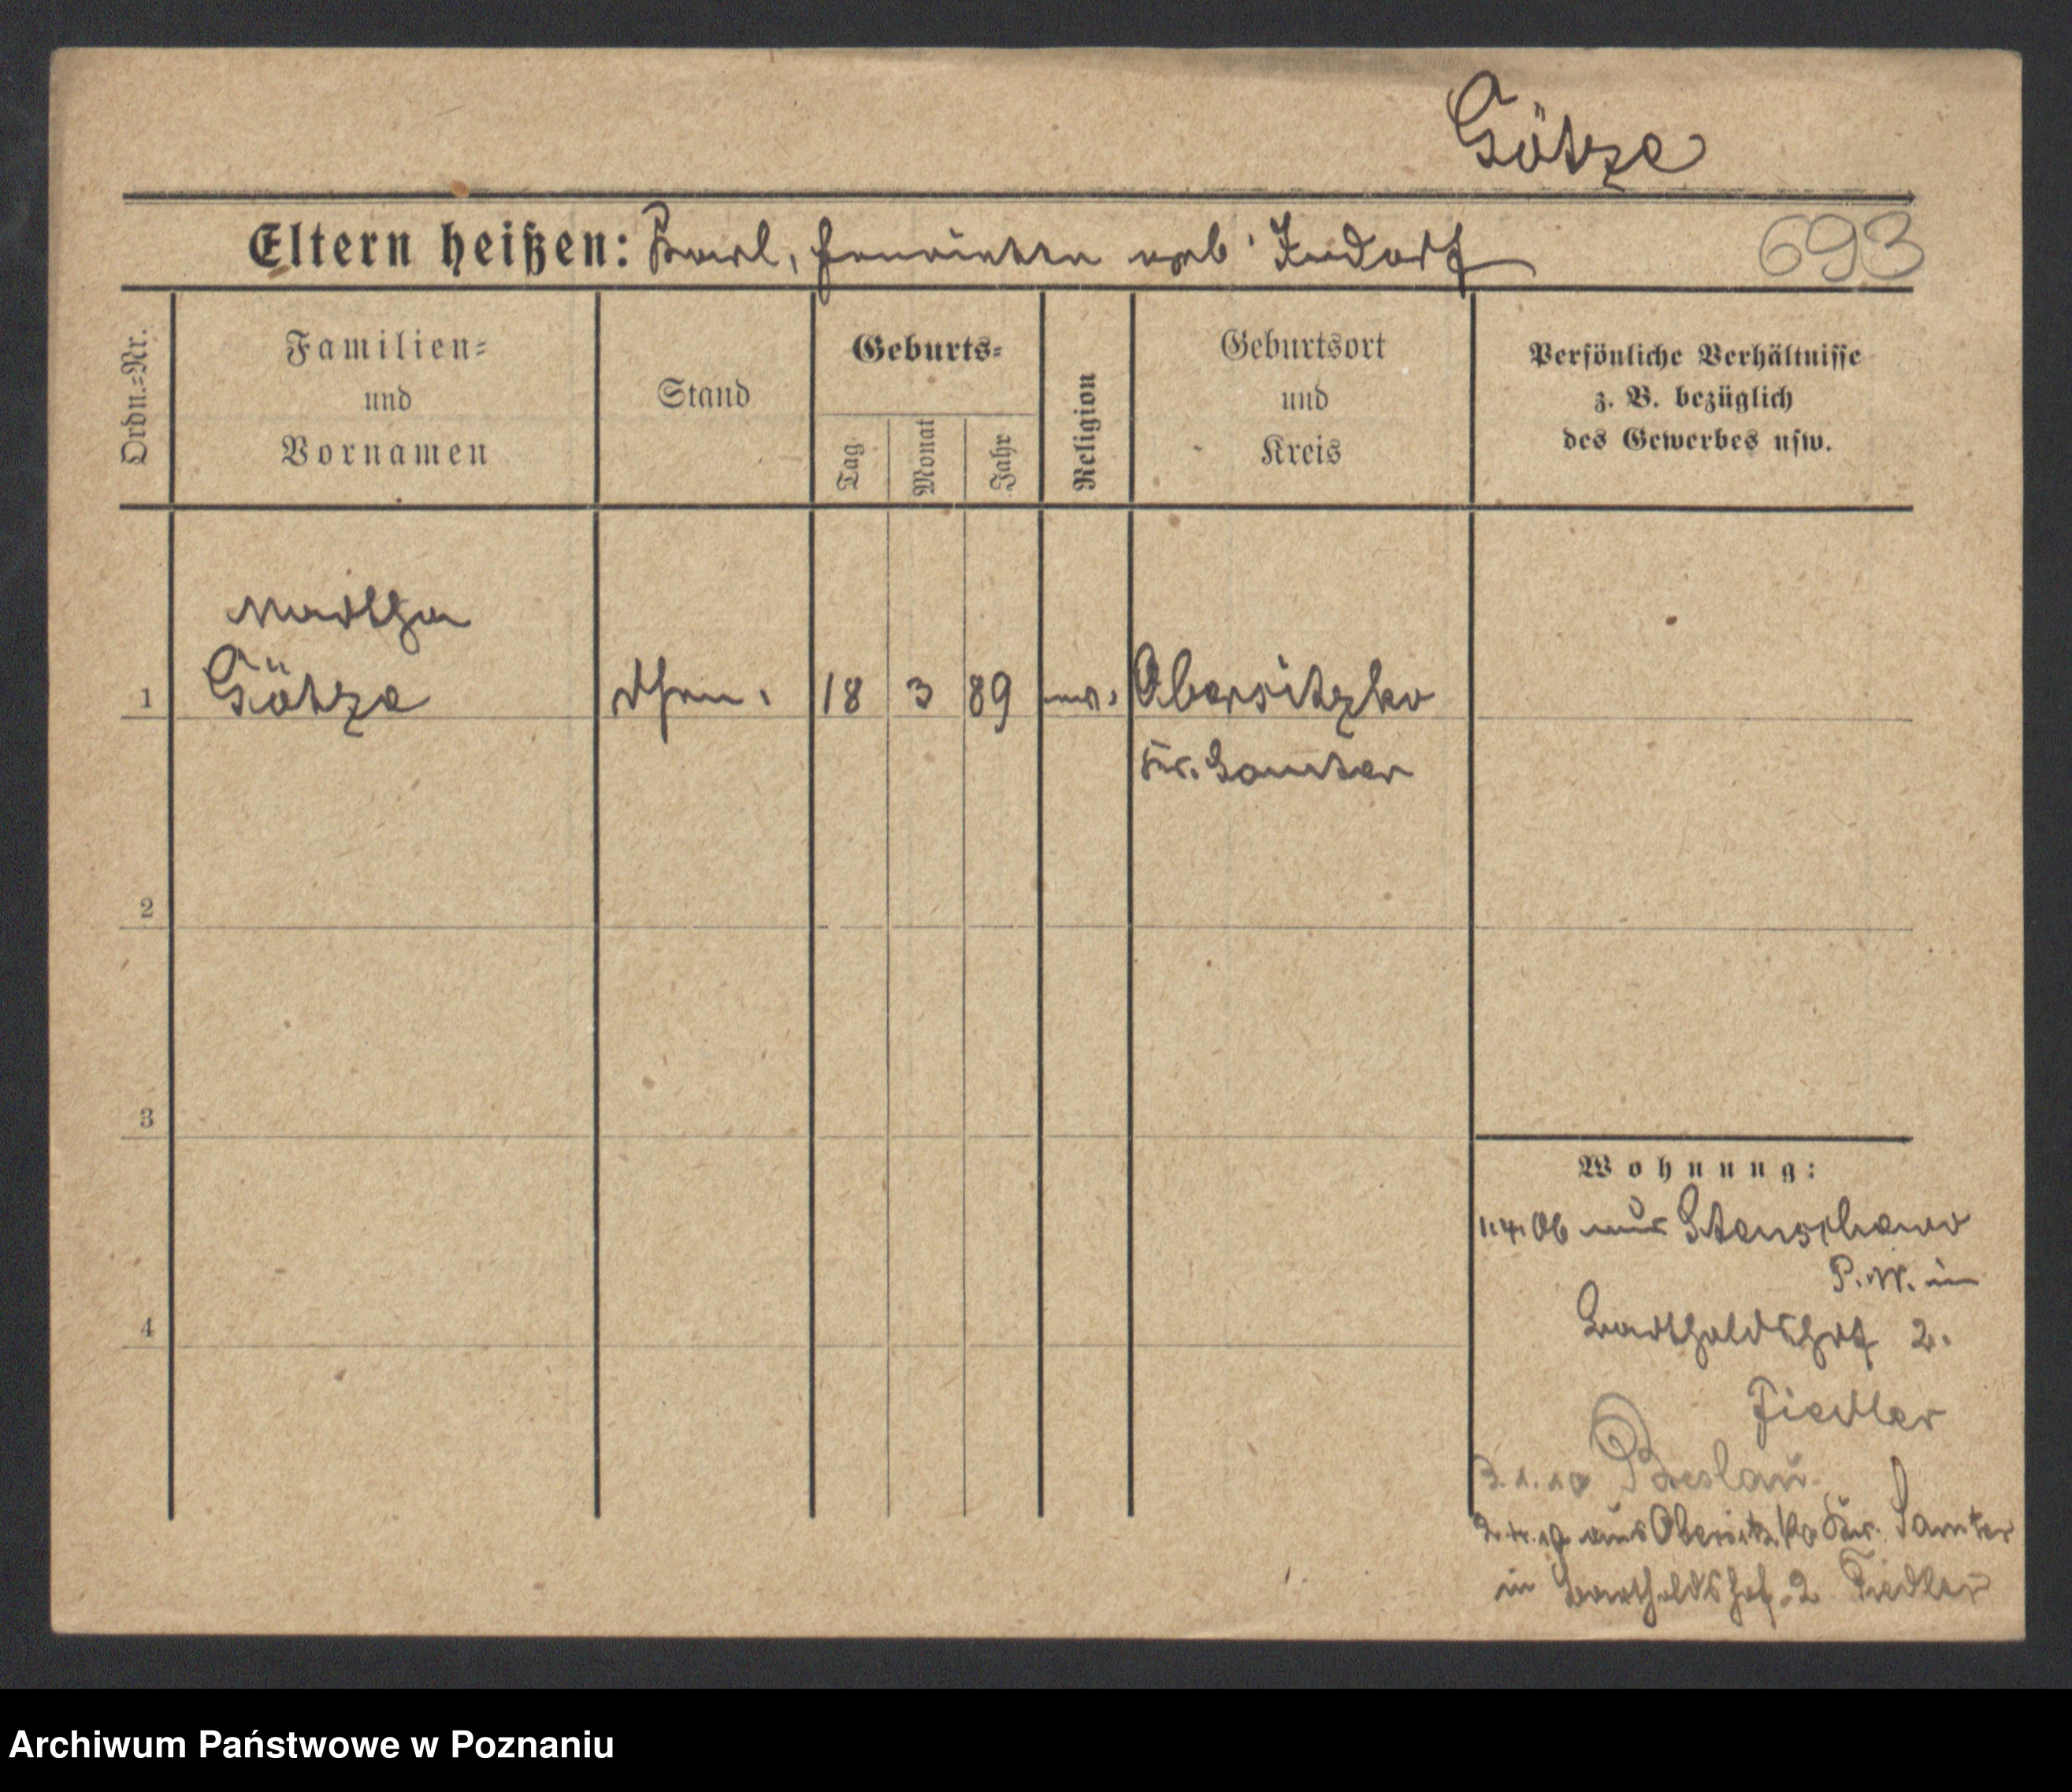 Götze
Eltern heißen: Karl, Henriette geb. Indorf
693
Ordn.=Nr.
Familien=
und
Vornamen
Stand
Geburts=
Tag
Monat
Jahr
Religion
Geburtsort
und
Kreis
Persönliche Verhältnisse
z. B. bezüglich
des Gewerbes usw.
Martha
1 Götze 18 3 89 ev. Obersitzko
Kr. Samter
2
3
4
Wohnung:
1.4.06 aus Stenschewo
P.W. in
Bartholdshof 2.
Fiedler
3.1.10 Breslau
aus Obersitzko Kr. Samter
in Bartholdshof 2 Fiedler
Archiwum Państwowe w Poznaniu